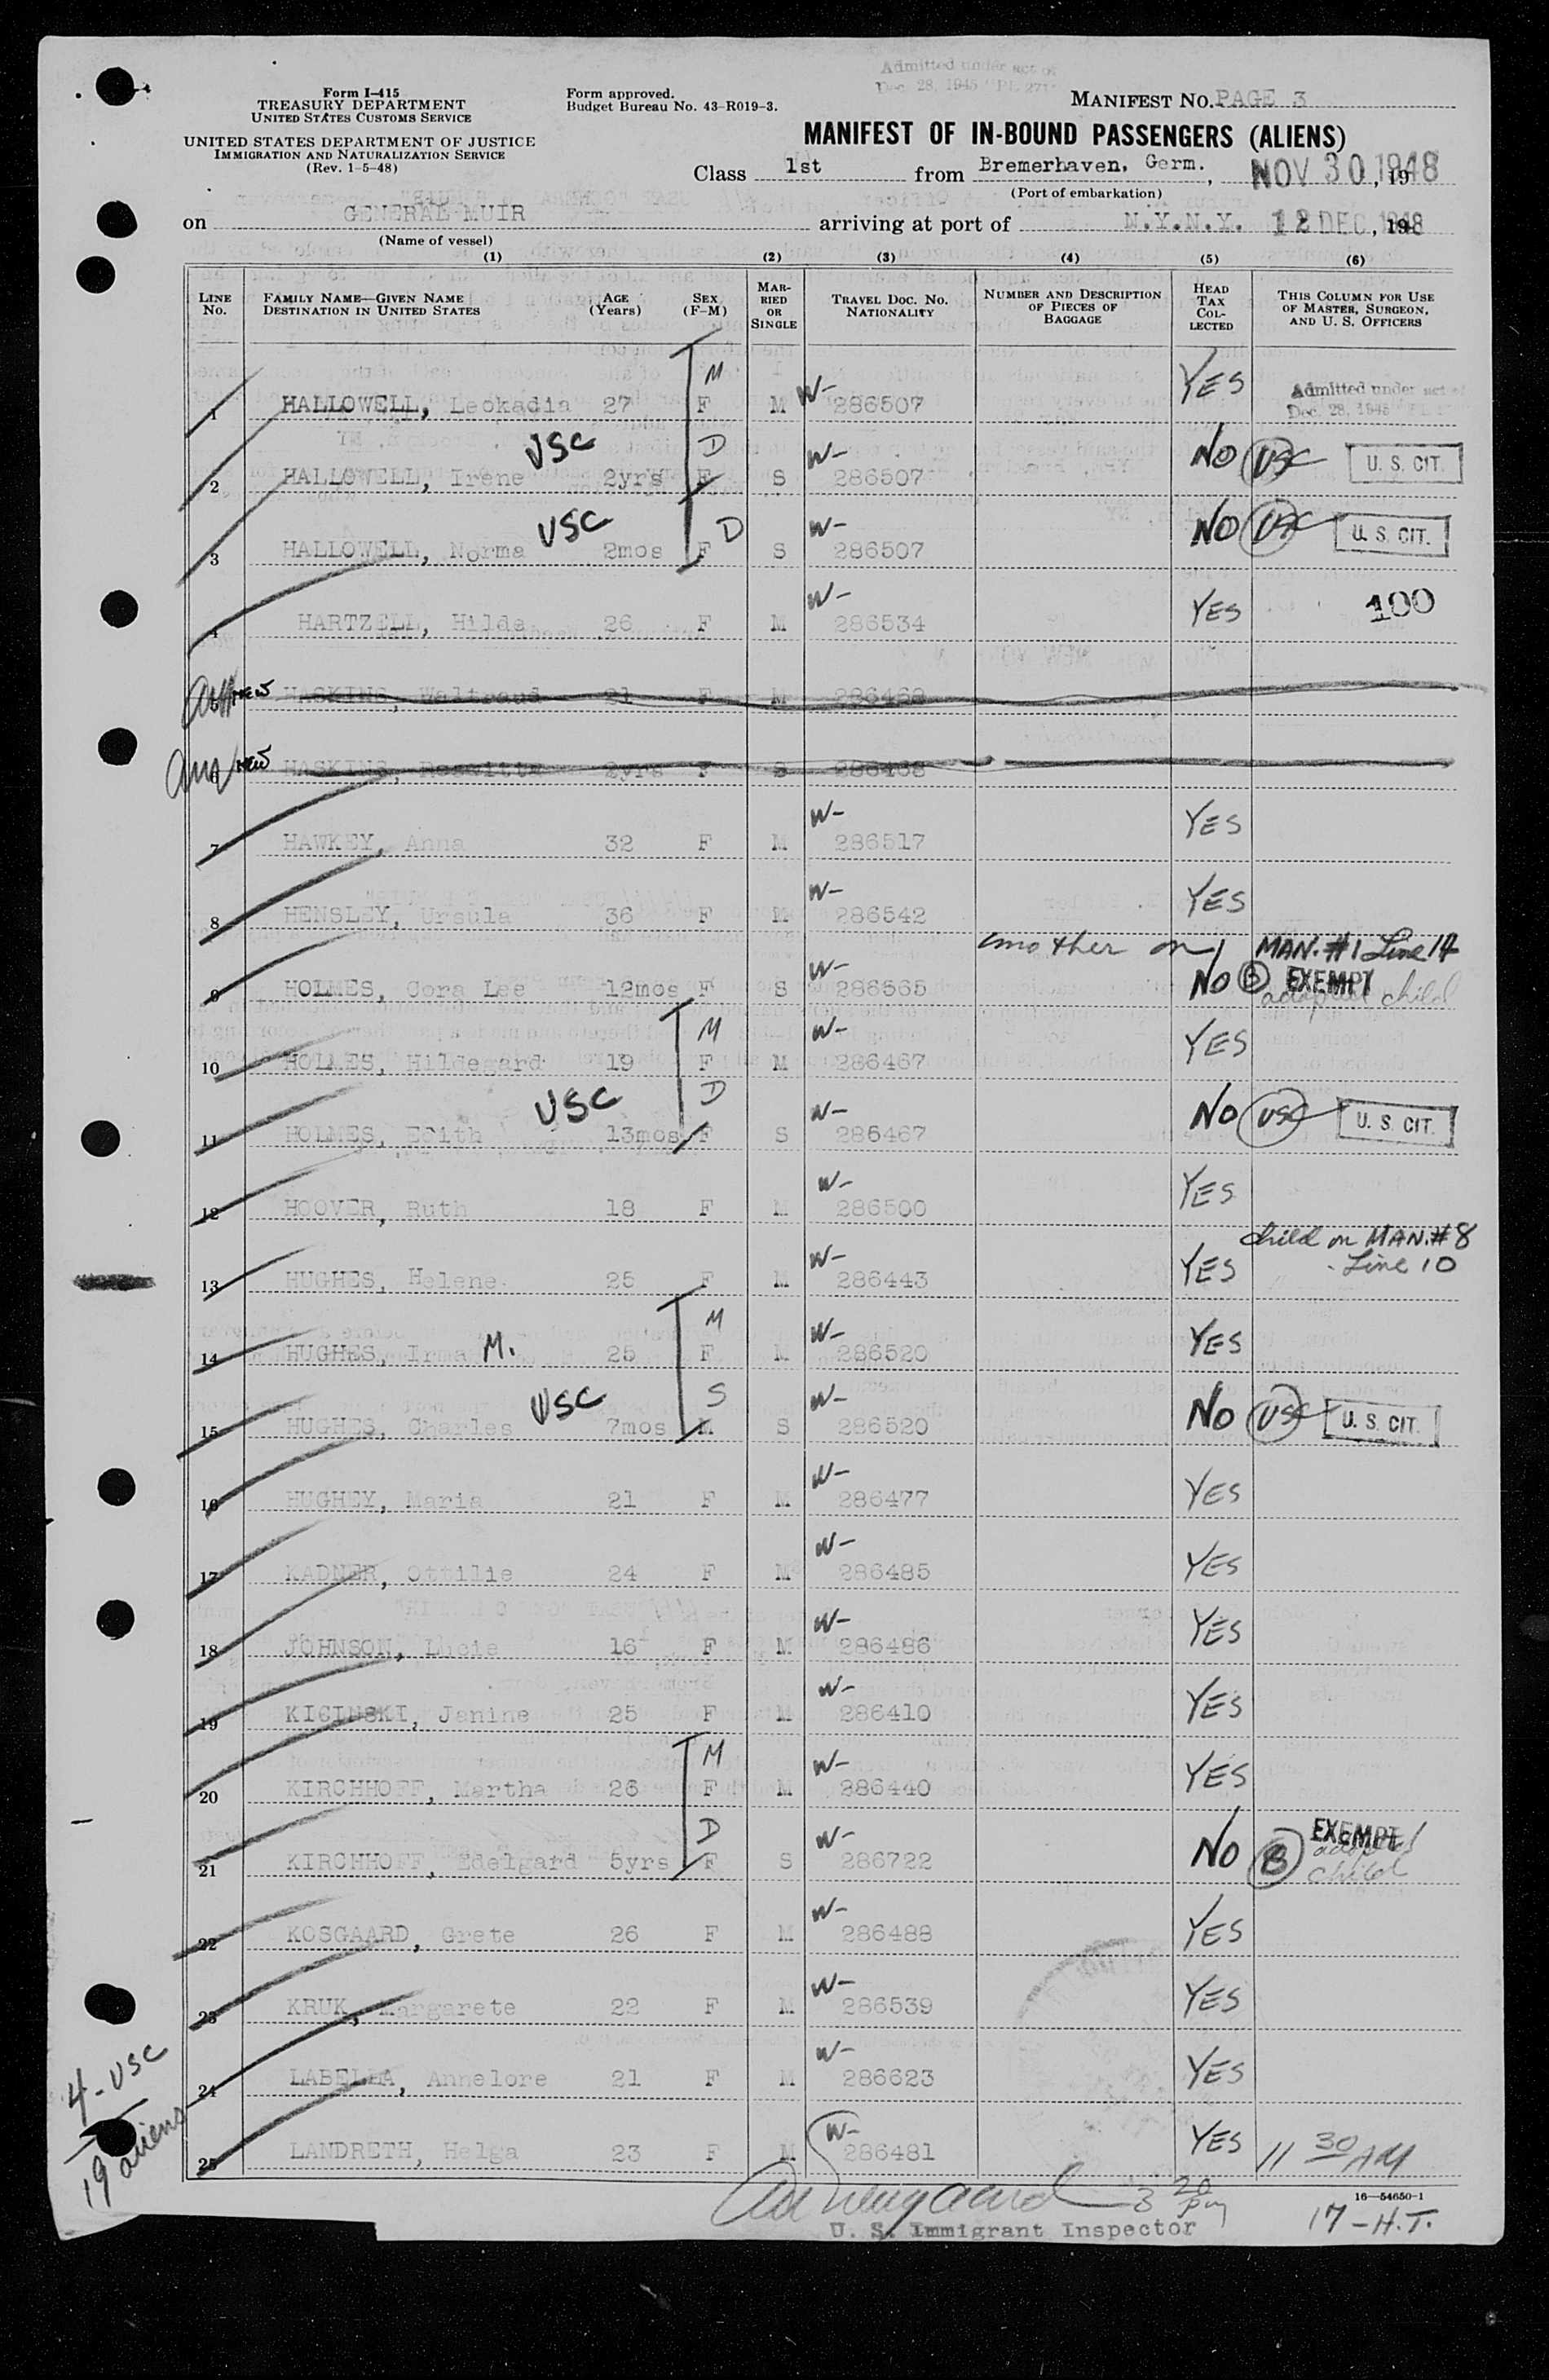 Admitted under act of
Dec. 28, 1945 "PL 271"
Form I-415
TREASURY DEPARTMENT
UNITED STATES CUSTOMS SERVICE
UNITED STATES DEPARTMENT OF JUSTICE
IMMIGRATION AND NATURALIZATION SERVICE
(Rev. 1-5-48)
Form approved.
Budget Bureau No. 43-R019-3.
MANIFEST NO. PAGE 3
MANIFEST OF IN-BOUND PASSENGERS (ALIENS)
Class 1st from Bremerhaven, Germ., NOV 30 1948, 19
(Port of embarkation)
on GENERAL MUIR arriving at port of N.Y.N.Y. 12 DEC, 1948
(Name of vessel)
(1) (2) (3) (4) (5) (6)
LINE NO. FAMILY NAME—GIVEN NAME DESTINATION IN UNITED STATES AGE (YEARS) SEX (F-M) MARRIED OR SINGLE TRAVEL DOC. NO. NATIONALITY NUMBER AND DESCRIPTION OF PIECES OF BAGGAGE HEAD TAX COLLECTED THIS COLUMN FOR USE OF MASTER, SURGEON, AND U. S. OFFICERS
1 HALLOWELL, Leokadia 27 M F M W- 286507 YES Admitted under act of Dec. 28, 1945
2 HALLOWELL, Irene USC 2yrs D F S W- 286507 NO USC U. S. CIT.
3 HALLOWELL, Norma USC 2mos D F S W- 286507 NO USC U. S. CIT.
4 HARTZELL, Hilda 26 F M W- 286534 YES 100
NEW HASKINS, Waltraud 21 F M 286468
6 NEW HASKINS, Roswitta 2yrs F S 286468
7 HAWKEY, Anna 32 F M W- 286517 YES
8 HENSLEY, Ursula 36 F M W- 286542 YES
mother on MAN. #1 Line 14
9 HOLMES, Cora Lee 12mos F S W- 286565 NO B EXEMPT adopted child
10 HOLMES, Hildegard 19 M F M W- 286467 YES
11 HOLMES, Edith USC 13mos D F S W- 286467 NO USC U. S. CIT.
12 HOOVER, Ruth 18 F M W- 286500 YES
child on MAN.#8
Line 10
13 HUGHES, Helene 25 F M W- 286443 YES
14 HUGHES, Irma M. 25 M F M W- 286520 YES
15 HUGHES, Charles USC 7mos S M S W- 286520 NO USC U. S. CIT.
16 HUGHEY, Maria 21 F M W- 286477 YES
17 KADNER, Ottilie 24 F M W- 286485 YES
18 JOHNSON, Lucie 16 F M W- 286486 YES
19 KICINSKI, Janine 25 F M W- 286410 YES
20 KIRCHHOFF, Martha 26 M F M W- 286440 YES
21 KIRCHHOFF, Edelgard 5yrs D F S W- 286722 NO B EXEMPT adopted child
22 KOSGAARD, Grete 26 F M W- 286488 YES
23 KRUK, Margarete 22 F M W- 286539 YES
24 LABELLA, Annelore 21 F M W- 286623 YES
25 LANDRETH, Helga 23 F M W- 286481 YES 11 30 AM
4-USC
19 aliens
3 20 pm
U. S. Immigrant Inspector
16—54650-1
17-H.T.